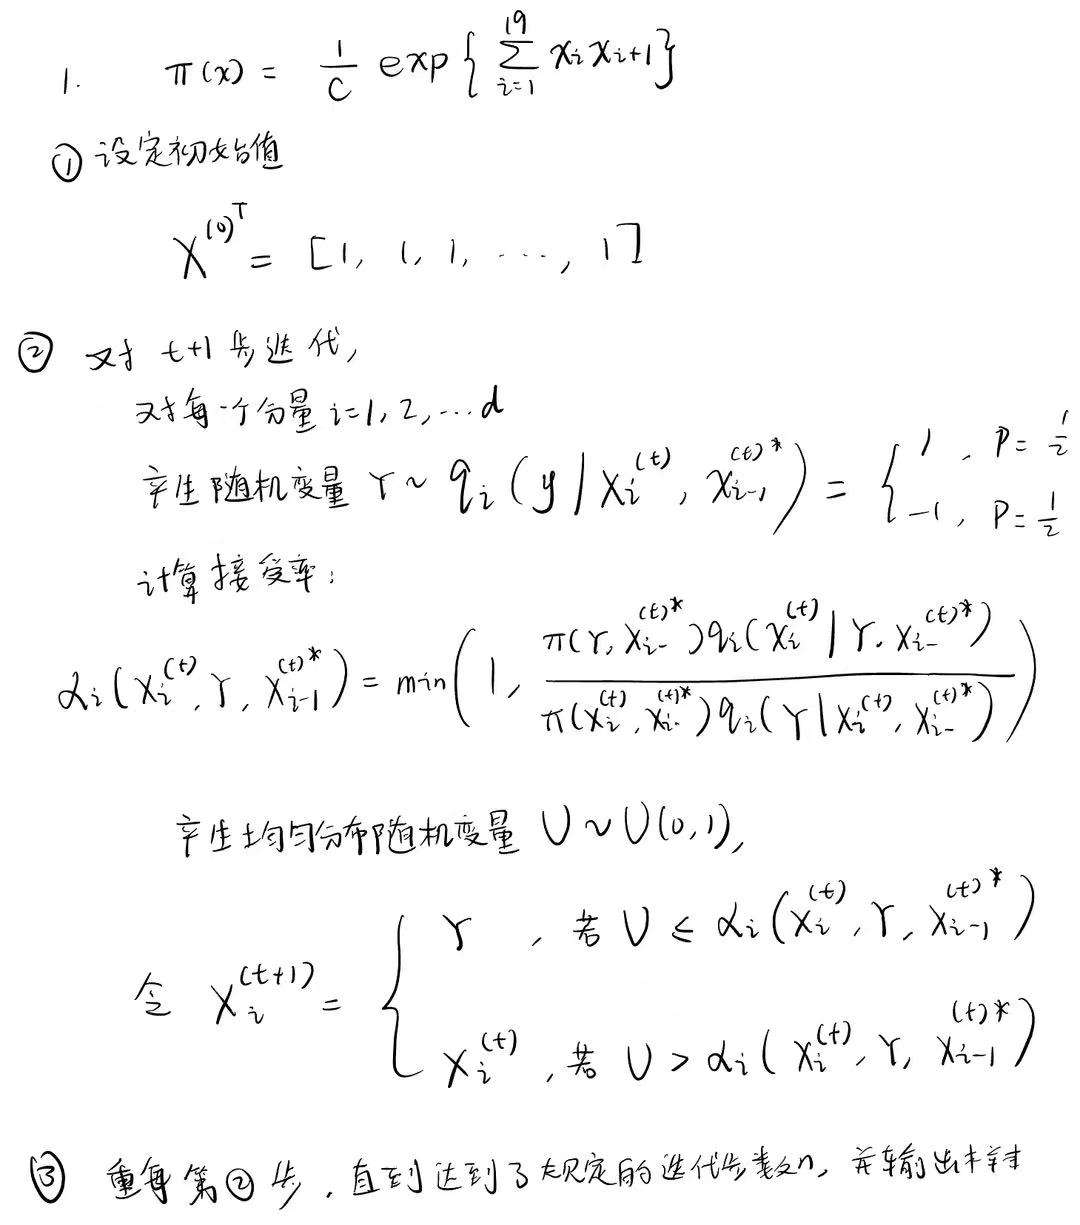 1. π(x) = 1/C exp{ ∑_{i=1}^{19} x_i x_{i+1} }
① 设定初始值
X^{(0)T} = [1, 1, 1, ..., 1]
② 对 t+1 步迭代,
对每一个分量 i=1, 2, ... d
产生随机变量 Y ~ q_i(y | x_i^{(t)}, x_{i-1}^{(t)*}) = { 1, P=1/2 ; -1, P=1/2
计算接受率:
α_i(x_i^{(t)}, Y, x_{i-1}^{(t)*}) = min(1, π(Y, x_{i-}^{(t)*}) q_i(x_i^{(t)} | Y, x_{i-}^{(t)*}) / π(x_i^{(t)}, x_{i-}^{(t)*}) q_i(Y | x_i^{(t)}, x_{i-}^{(t)*}))
产生均匀分布随机变量 U ~ U(0,1),
令 X_i^{(t+1)} = { Y, 若 U ≤ α_i(x_i^{(t)}, Y, x_{i-1}^{(t)*})
x_i^{(t)}, 若 U > α_i(x_i^{(t)}, Y, x_{i-1}^{(t)*})
③ 重复第②步, 直到达到了规定的迭代步数n, 并输出样本